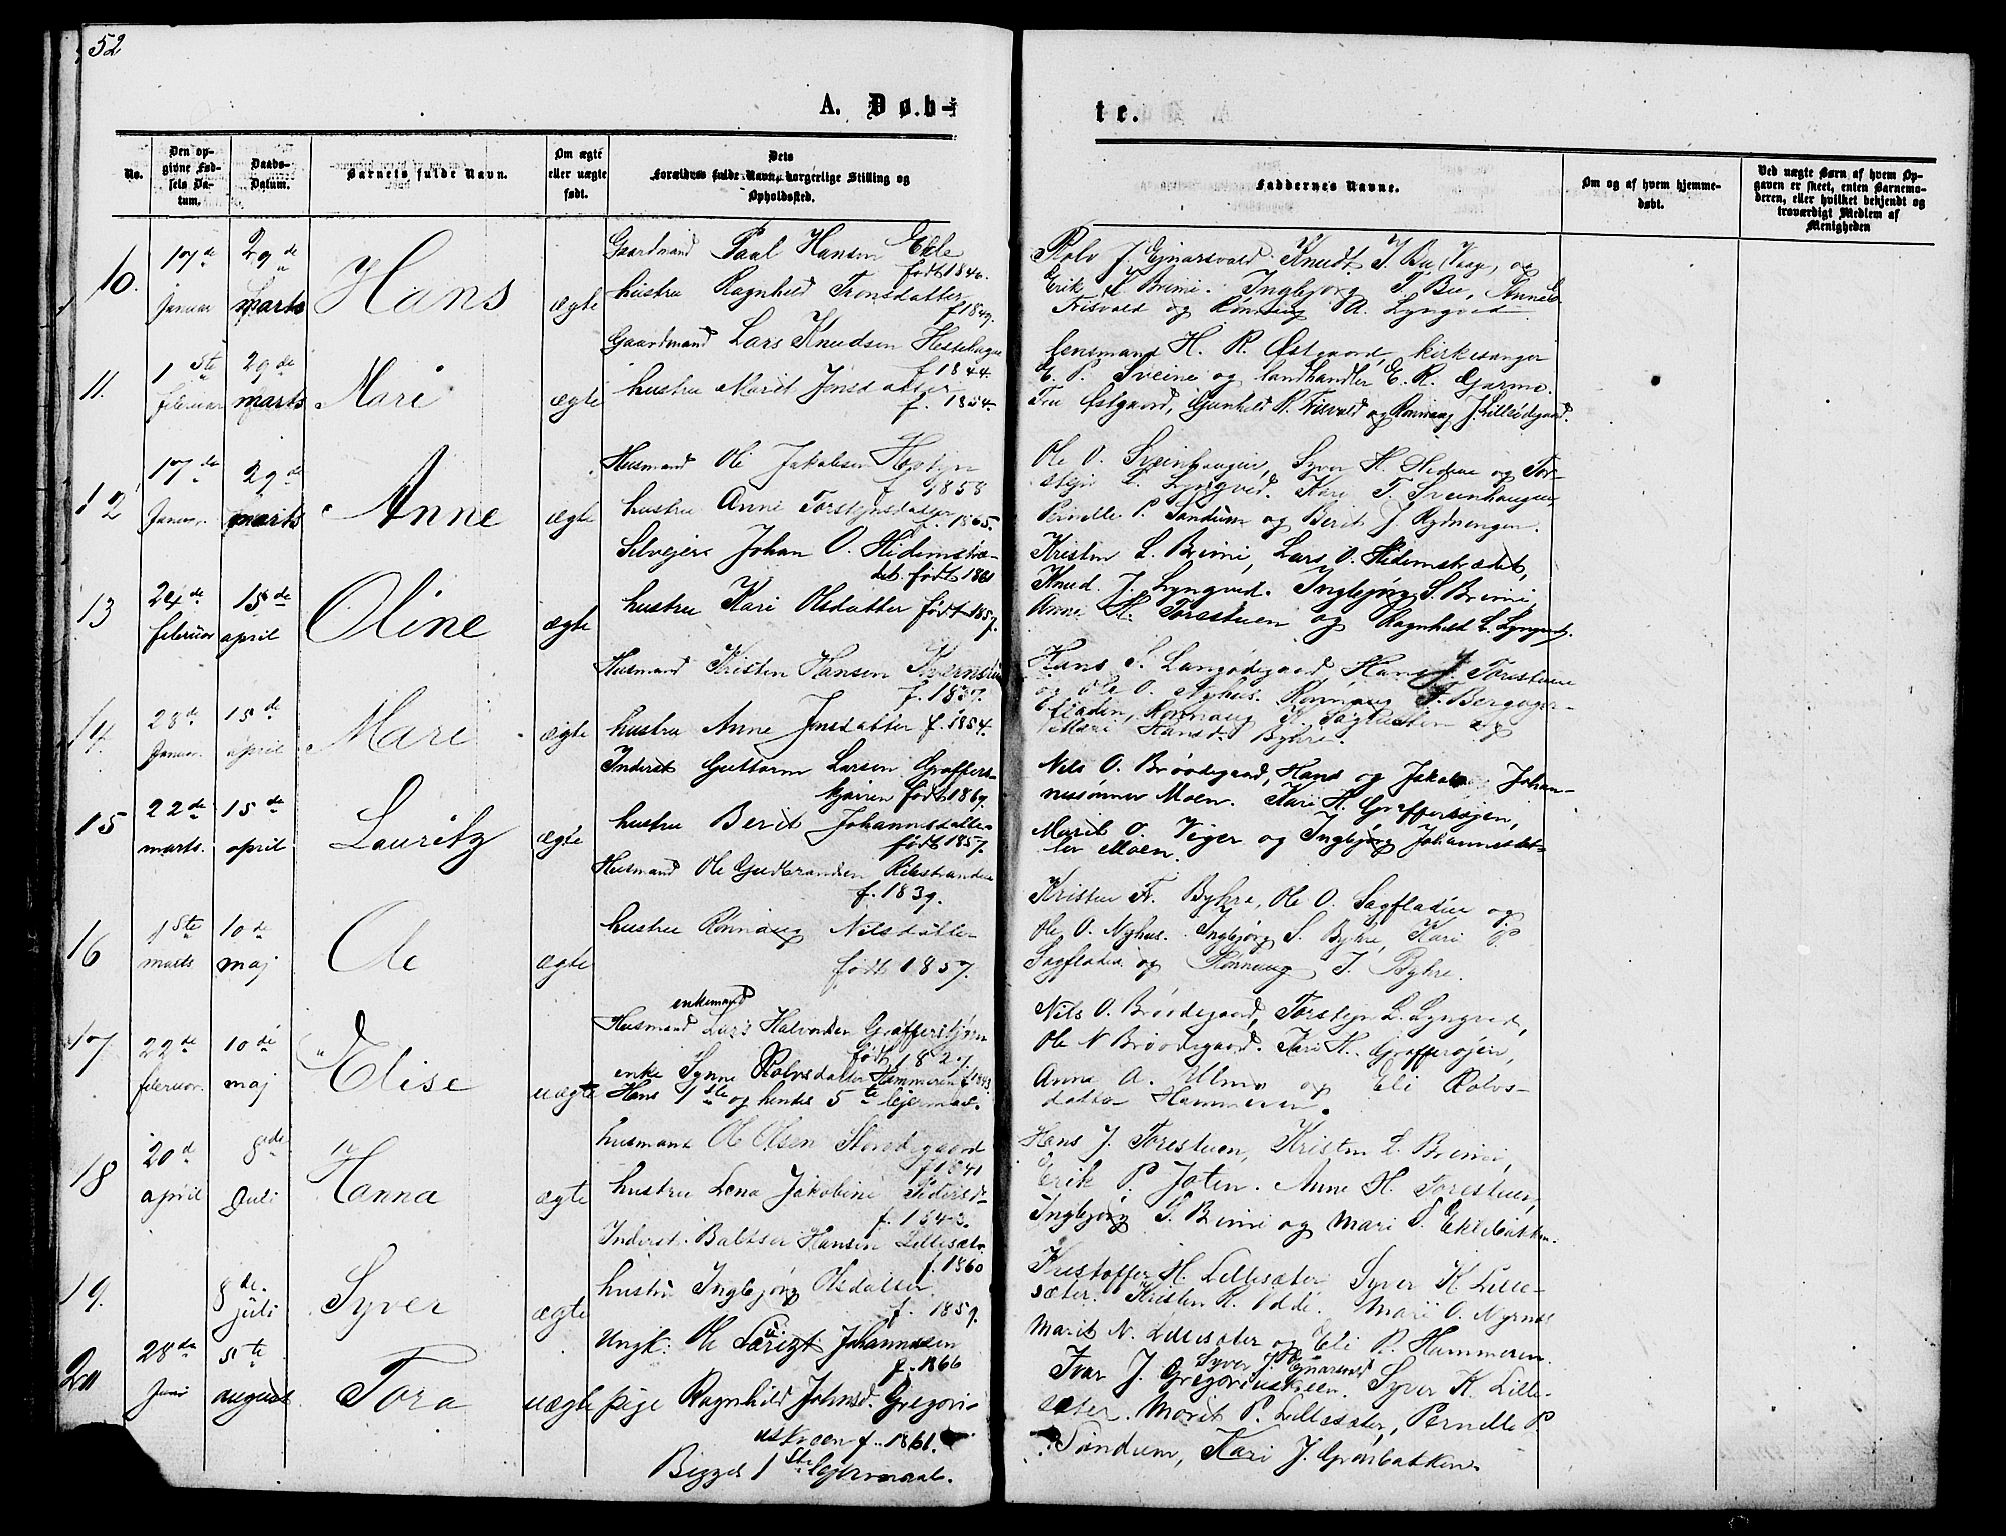 52
A. Døb-
te.
No.
Den op-
givne Fød-
sels Da-
tum.
Daabs-
Datum.
Barnets fulde Navn.
Om ægte
eller uægte
født.
Dets
Forældres fulde Navn, borgerlige Stilling og
Opholdssted.
Faddernes Navne.
Om og af hvem hjemme-
døbt.
Ved uægte Børn af hvem Op-
gaven er skeet, enten Barnemo-
deren, eller hvilket bekjendt og
troværdigt Medlem af
Menigheden
10.
17de
Januar
29de
marts
Hans
ægte
Gaardmand Paal Hansen Ekle
født 1846.
hustru Ragnhild Tronsdatter
f 1849.
Rolv J. Ejnarsvald Knudt J. Bu (Vaage) og
Erik L Brimi. Ingbjørg T. Bu, Anne
Frisvald og Rønnaug R. Lyngved
11.
1ste
februar
29de
marts
Mari
ægte
Gaardmand Lars Knudsen
f 1844.
hustru Marit Jonsdatter
f. 1854.
lensmand H. R. Østgaard, kirkesanger
E. P. Sveine og landhandler E. R. Garmo.
Fru Østgaard, Gunhild R. Frisvold og Rønnaug J. Lilleødegaard.
12
17de
Januar.
29de
marts
Anne
ægte
Husmand Ole Jakobsen
f 1858
hustru Anne Torstejnsdatter
f. 1865.
Ole O. Sveinhaugen, Syver H. og Tor-
stejn L. Lyngved. Kari T. Sveinhaugen,
Pernelle P. Sandum og Berit J
13
24de
februar
15de
april
Oline
ægte
Selvejer Johan O. Hidemstræ-
det født 1861
hustru Kari Olsdatter født 1857.
Kristen L. Brimi, Lars O. Hidemstrædet,
Knud J. Lyngved. Ingbjørg S. Brimi,
Anne H. Torestuen og Ragnhild L. Lyngved.
14.
28de
Januar.
15de
april
Mari
ægte
Husmand Kristen Hansen
f. 1839.
hustru Anne Jonsdatter f. 1854.
Hans S. Langødegaard, Hans J. Torestuen
og Ole O. Nyhus. Rønnaug
Rønnaug K. og
Mari Hansd. Byhre.
15
22de
marts.
15de
april
Lauritz
ægte
Inderst Guttorm Larsen Graffers-
kjæren født 1869.
hustru Berit Johannesdatter
født 1857.
Nils O. Brøødegaard, Hans og Jakob Johan-
nessønner Moen. Kari H. Graffersøjen,
Marit O. Viger og Ingbjørg Johannesdat-
ter Moen.
16
1ste
marts
10de
maj
Ole
ægte
Husmand Ole Gudbrandsen
f. 1839.
hustru Rønnaug Nilsdatter
født 1857.
Kristen F. Byhre, Ole O. Sagfladen og
Ole O. Nyhus. Ingbjørg S. Byhre, Kari P
Sagfladen og Rønnaug J. Byhre.
17
22de
februar.
10de
maj
Elise
uægte
enkemand
Husmand Lars Halvorsen
født 1827
enke Synne Rolvsdatter Hammeren f 1843
Hans 1ste og hendes 5te lejermaal.
Nils O. Brøødegaard, Torstejn L. Lyngved,
Ole N Brøødegaard. Kari H. Graffersøjen,
Anne A. Ulmo og Eli Rolvs-
datter Hammeren.
18
20de
april
8de
Juli
Hanna
ægte
husmand Ole Olsen Storødegaard
f 1841
hustru Lena Jakobine Pedersd
f. 1843.
Hans J. Torestuen, Kristen L. Brimi,
Erik P. Joten. Anne H. Torestuen,
Ingbjørg S. Brimi og Mari T. Eklebakken.
19.
8de.
juli
Syver
ægte
Inderst. Baltser Hansen Lillesæter
f. 1860
hustru Ingbjørg Olsdatter.
f. 1859.
Kristoffer H. Lillesæter Syver K. Lille-
sæter. Kristen R. Odde. Mari O. Nyrnes
Marit N. Lillesæter og Eli R. Hammeren.
20
28de
Juni
5te
august
Tora
uægte
Ungk: Ole Johannesen
f. 1866
pige Ragnhild Johnsd. Gregori-
uskveen f. 1861.
Begges 1ste lejermaal.
Syver J. Ejnarsvd
Ivar J. Gregoriuskveen. Syver K. Lille-
sæter. Marit P. Lillesæter, Pernille P.
Sandum, Kari J. Grønbakken.